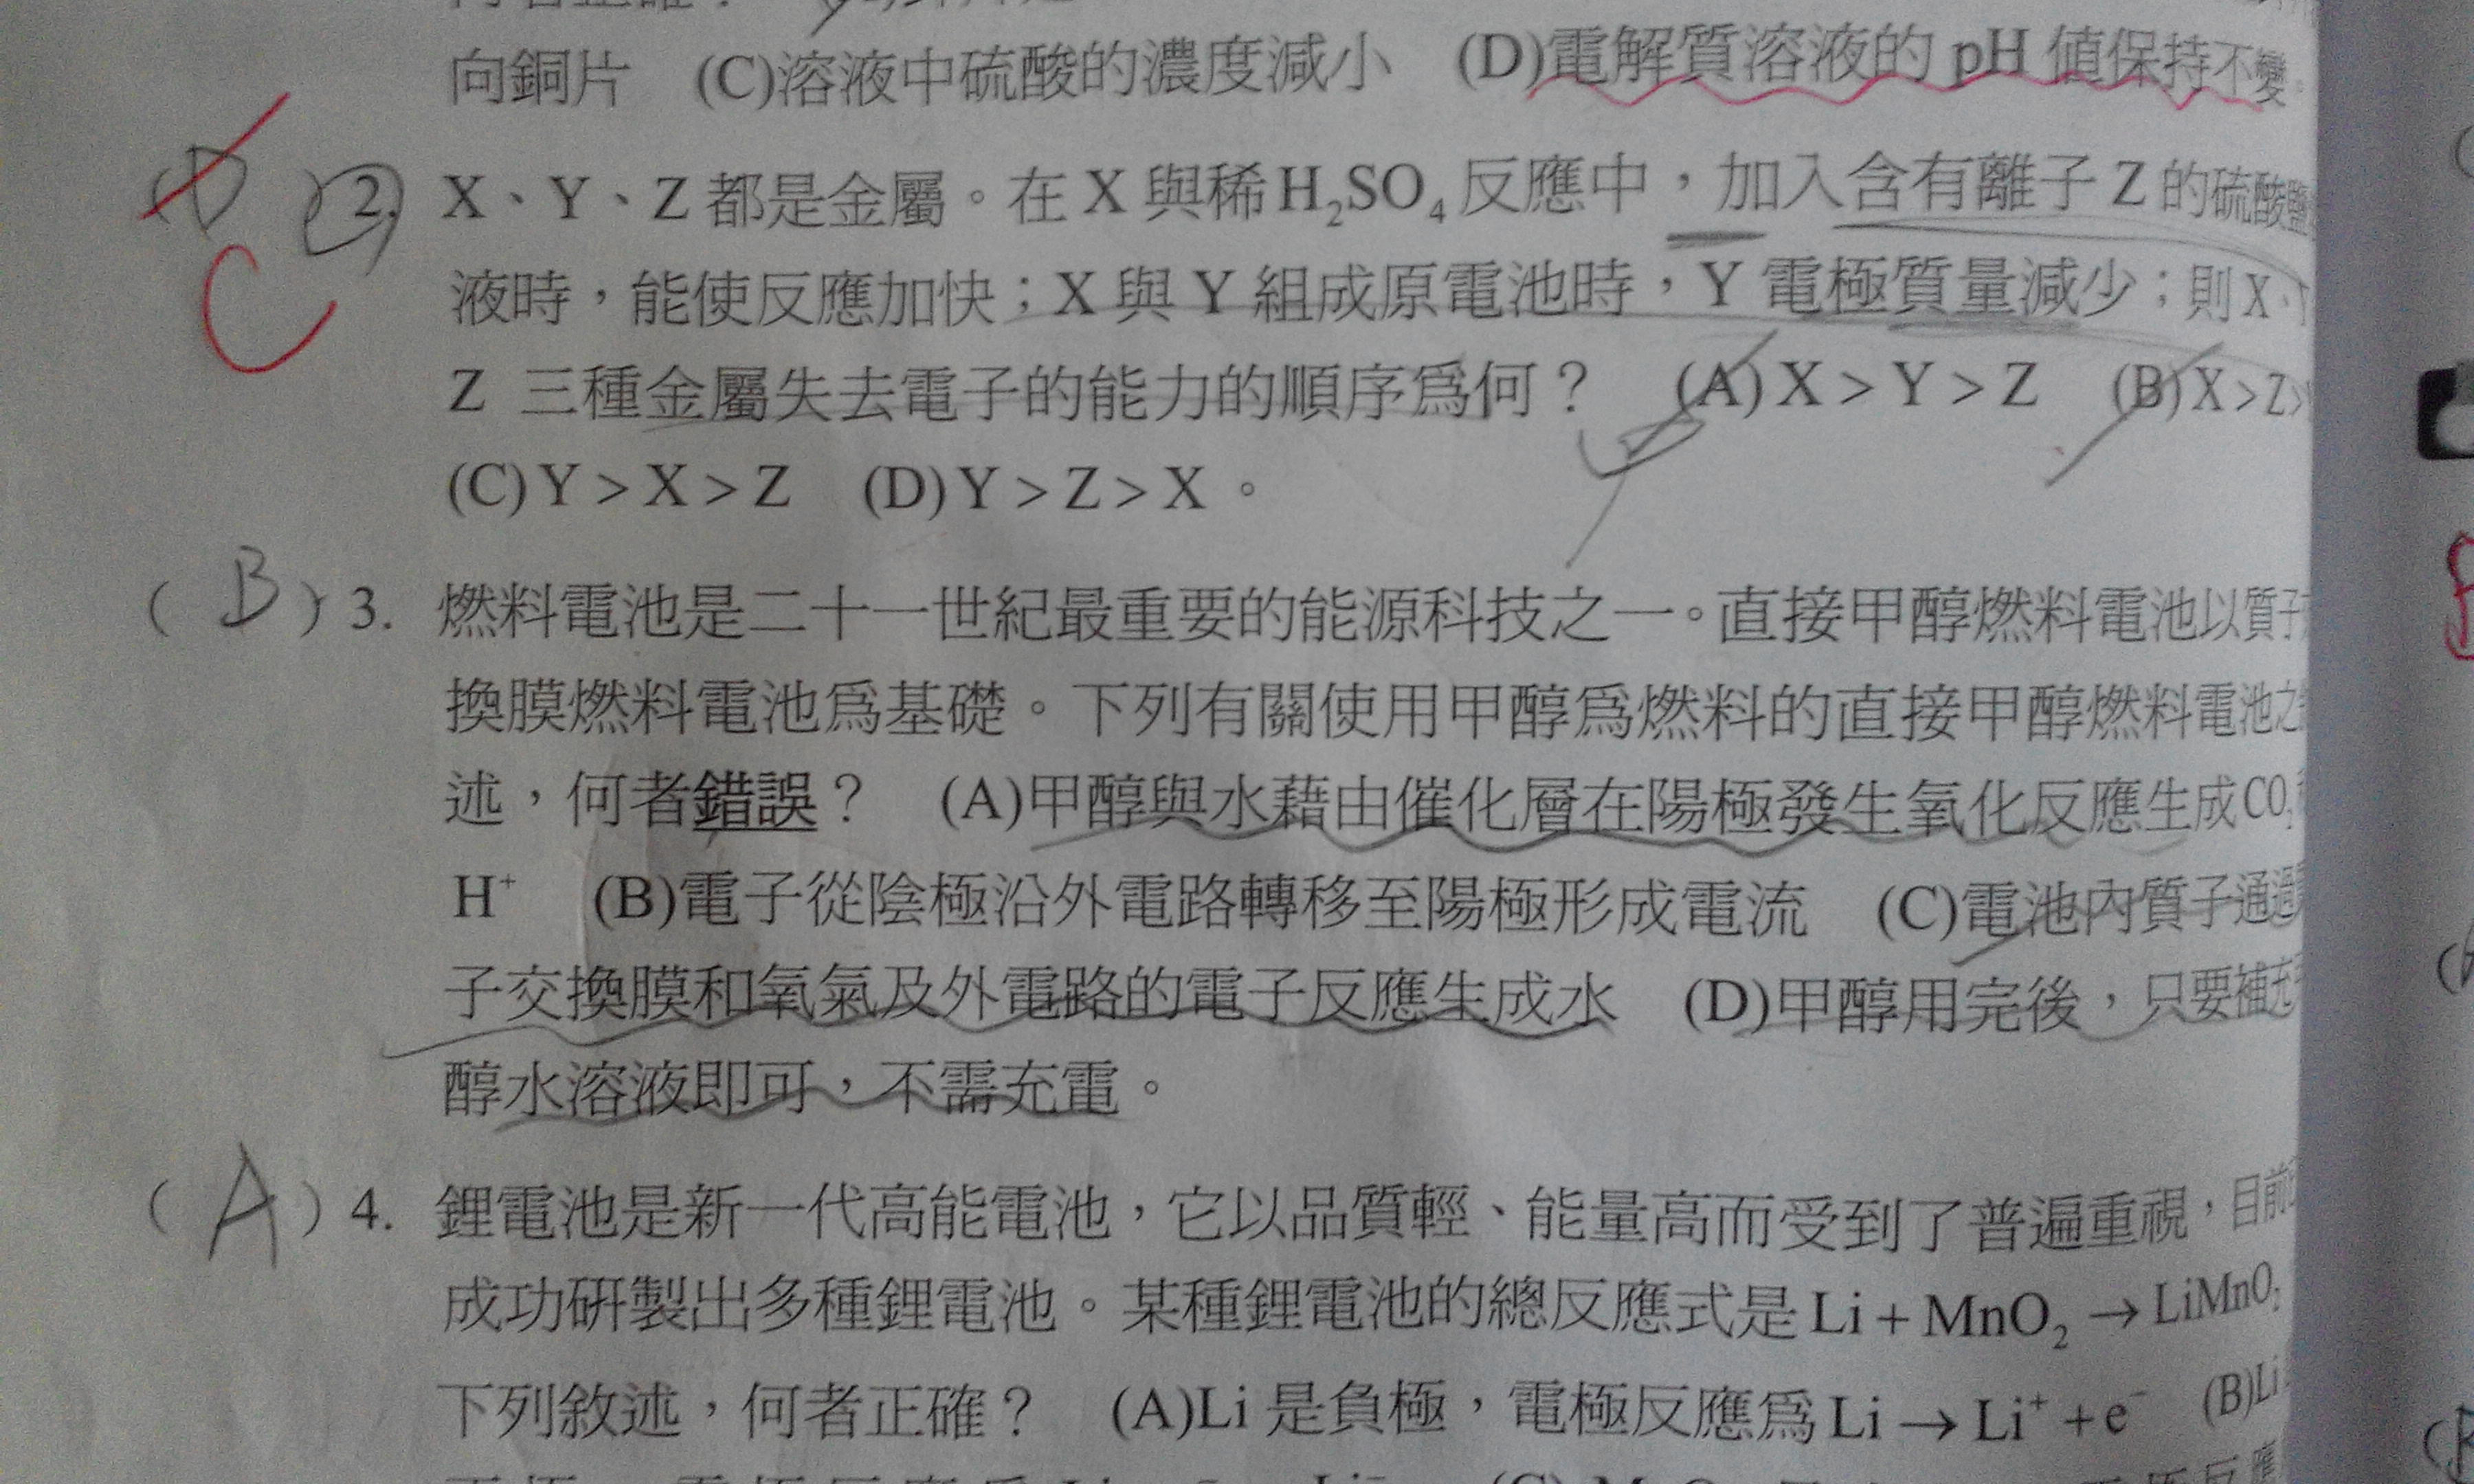 向銅片 (C)溶液中硫酸的濃度減小 (D)電解質溶液的 pH 值保持不變。
(D) 2. X、Y、Z 都是金屬。在 X 與稀 H₂SO₄ 反應中,加入含有離子 Z 的硫酸鹽
C
液時,能使反應加快;X 與 Y 組成原電池時,Y 電極質量減少;則 X、Y
Z 三種金屬失去電子的能力的順序為何? (A) X > Y > Z (B) X > Z >
(C) Y > X > Z (D) Y > Z > X。
( B ) 3. 燃料電池是二十一世紀最重要的能源科技之一。直接甲醇燃料電池以質子
換膜燃料電池為基礎。下列有關使用甲醇為燃料的直接甲醇燃料電池之
述,何者錯誤? (A)甲醇與水藉由催化層在陽極發生氧化反應生成 CO₂
H⁺ (B)電子從陰極沿外電路轉移至陽極形成電流 (C)電池內質子通過
子交換膜和氧氣及外電路的電子反應生成水 (D)甲醇用完後,只要補充
醇水溶液即可,不需充電。
( A ) 4. 鋰電池是新一代高能電池,它以品質輕、能量高而受到了普遍重視,目前
成功研製出多種鋰電池。某種鋰電池的總反應式是 Li + MnO₂ → LiMnO₂
下列敘述,何者正確? (A)Li 是負極,電極反應為 Li → Li⁺ + e⁻ (B)Li